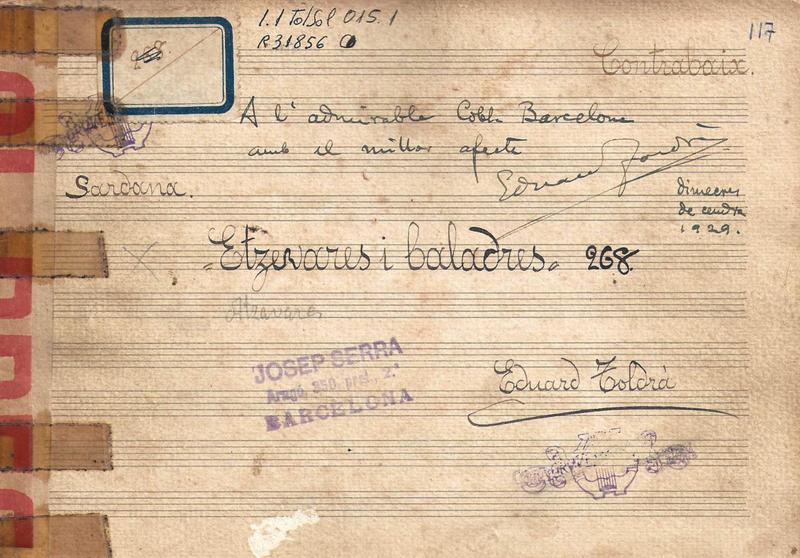 1.1 Tol/Sol 015.1
R 31856
117
268
Contrabaix.
A l'admirable Cobla Barcelona
amb el millor afecte
Eduard Toldrà
Sardana.
dimecres
de cendra
1929.
"Etzevares i baladres" 268
Atzavares
JOSEP SERRA
Aragó, 350, pral., 2.ª
BARCELONA
Eduard Toldrà